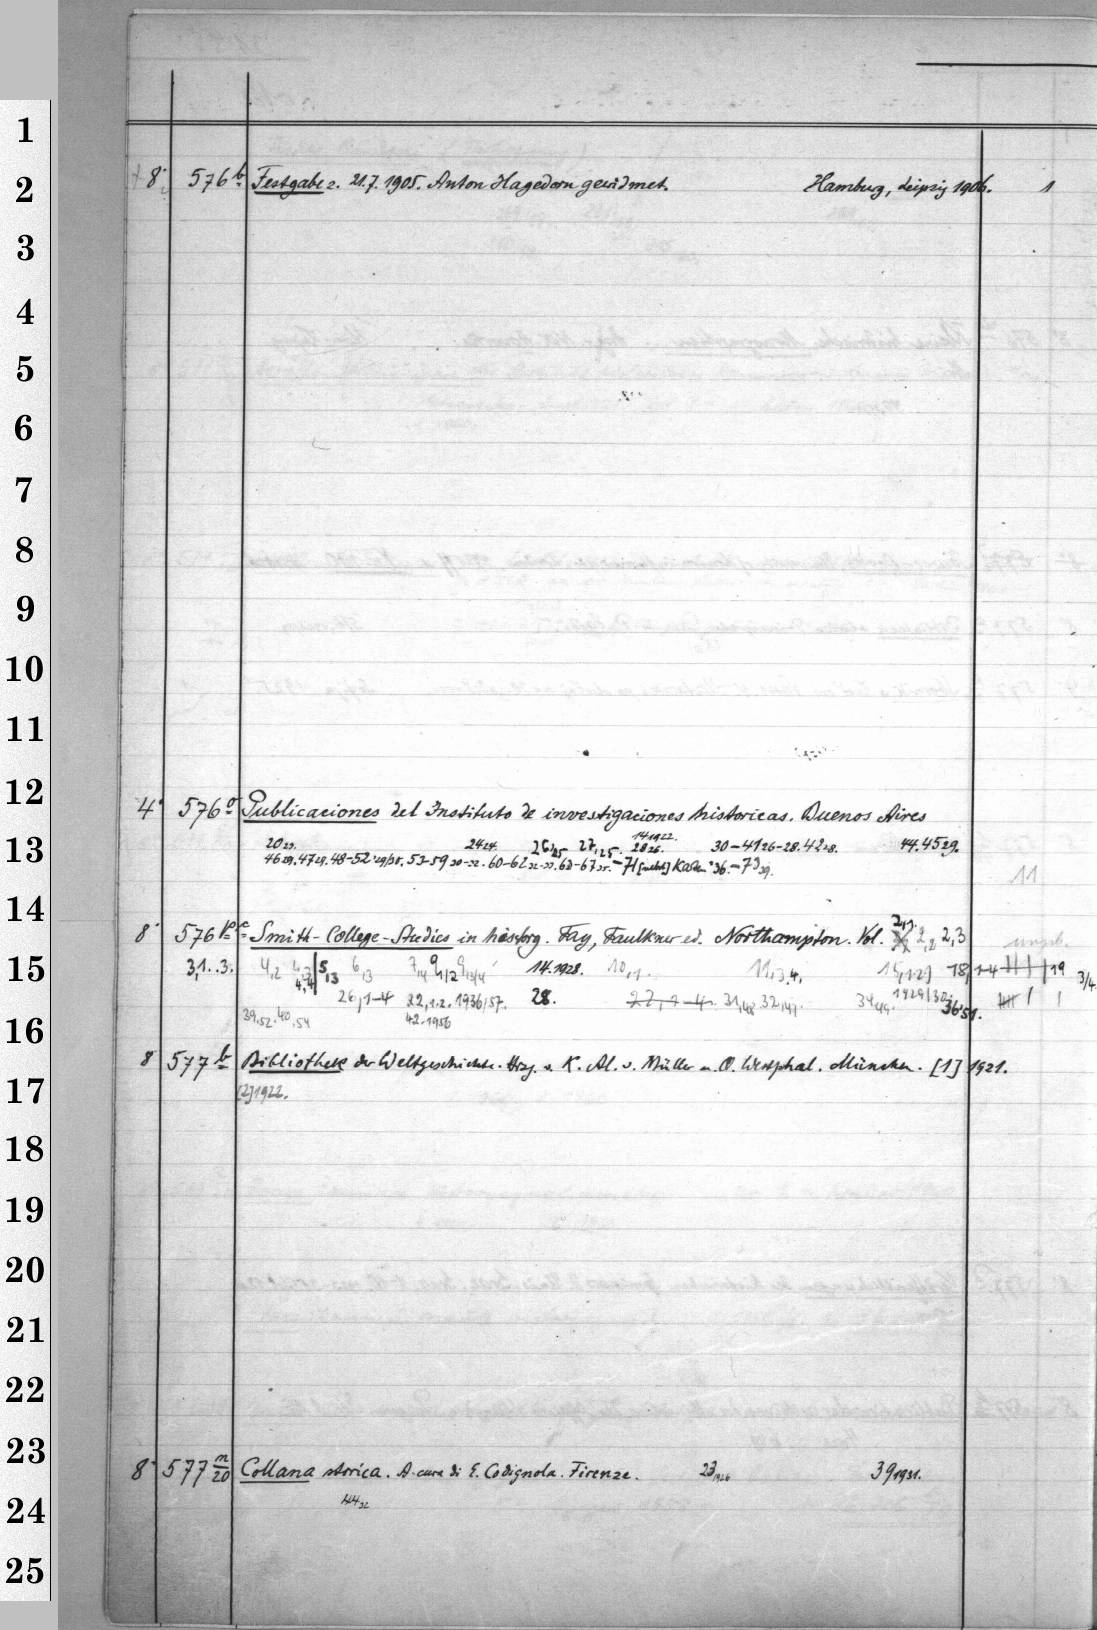 1
2
3
4
5
6
7
8
9
10
11
12
13
14
15
16
17
18
19
20
21
22
23
24
25
8° 576 b Festgabe z. 21.7.1905. Anton Hagedorn gewidmet. Hamburg, Leipzig 1906. 1
4° 576 g Publicaciones del Instituto de investigaciones historicas. Buenos Aires
14 1922.
20 23. 24 24. 26,25 27,25. 28 26. 30-41 26-28. 42 28. 44. 45 29.
46 29, 47 29. 48-52 '29/35. 53-59 30-32. 60-62 32-33. 63-67 35. -71 36. -73 39.
11
8° 576 Smith-College-Studies in history. Fay, Faulkner ed. Northampton. Vol. 2,2 2,3 ungeb.
3,1..3. 4,2 4,4 5,3 6,3 7,4 9 1/2 9 3/4 14. 1928. 10,1. 11,3.4. 18,1-4 19 3/4.
26,1-4 22,1.2. 1936/37. 28. 22,1-4 31,48 32,49. 34,49. 1929/30. 36'51.
39.52. 40.54 42.1956
8 577 b Bibliothek der Weltgeschichte. Hrsg. v. K. Al. v. Müller u. O. Westphal. München. [1] 1921.
[2] 1922.
8° 577 n/20 Collana storica. A cura di E. Codignola. Firenze. 23 1926 39 1931.
44 32